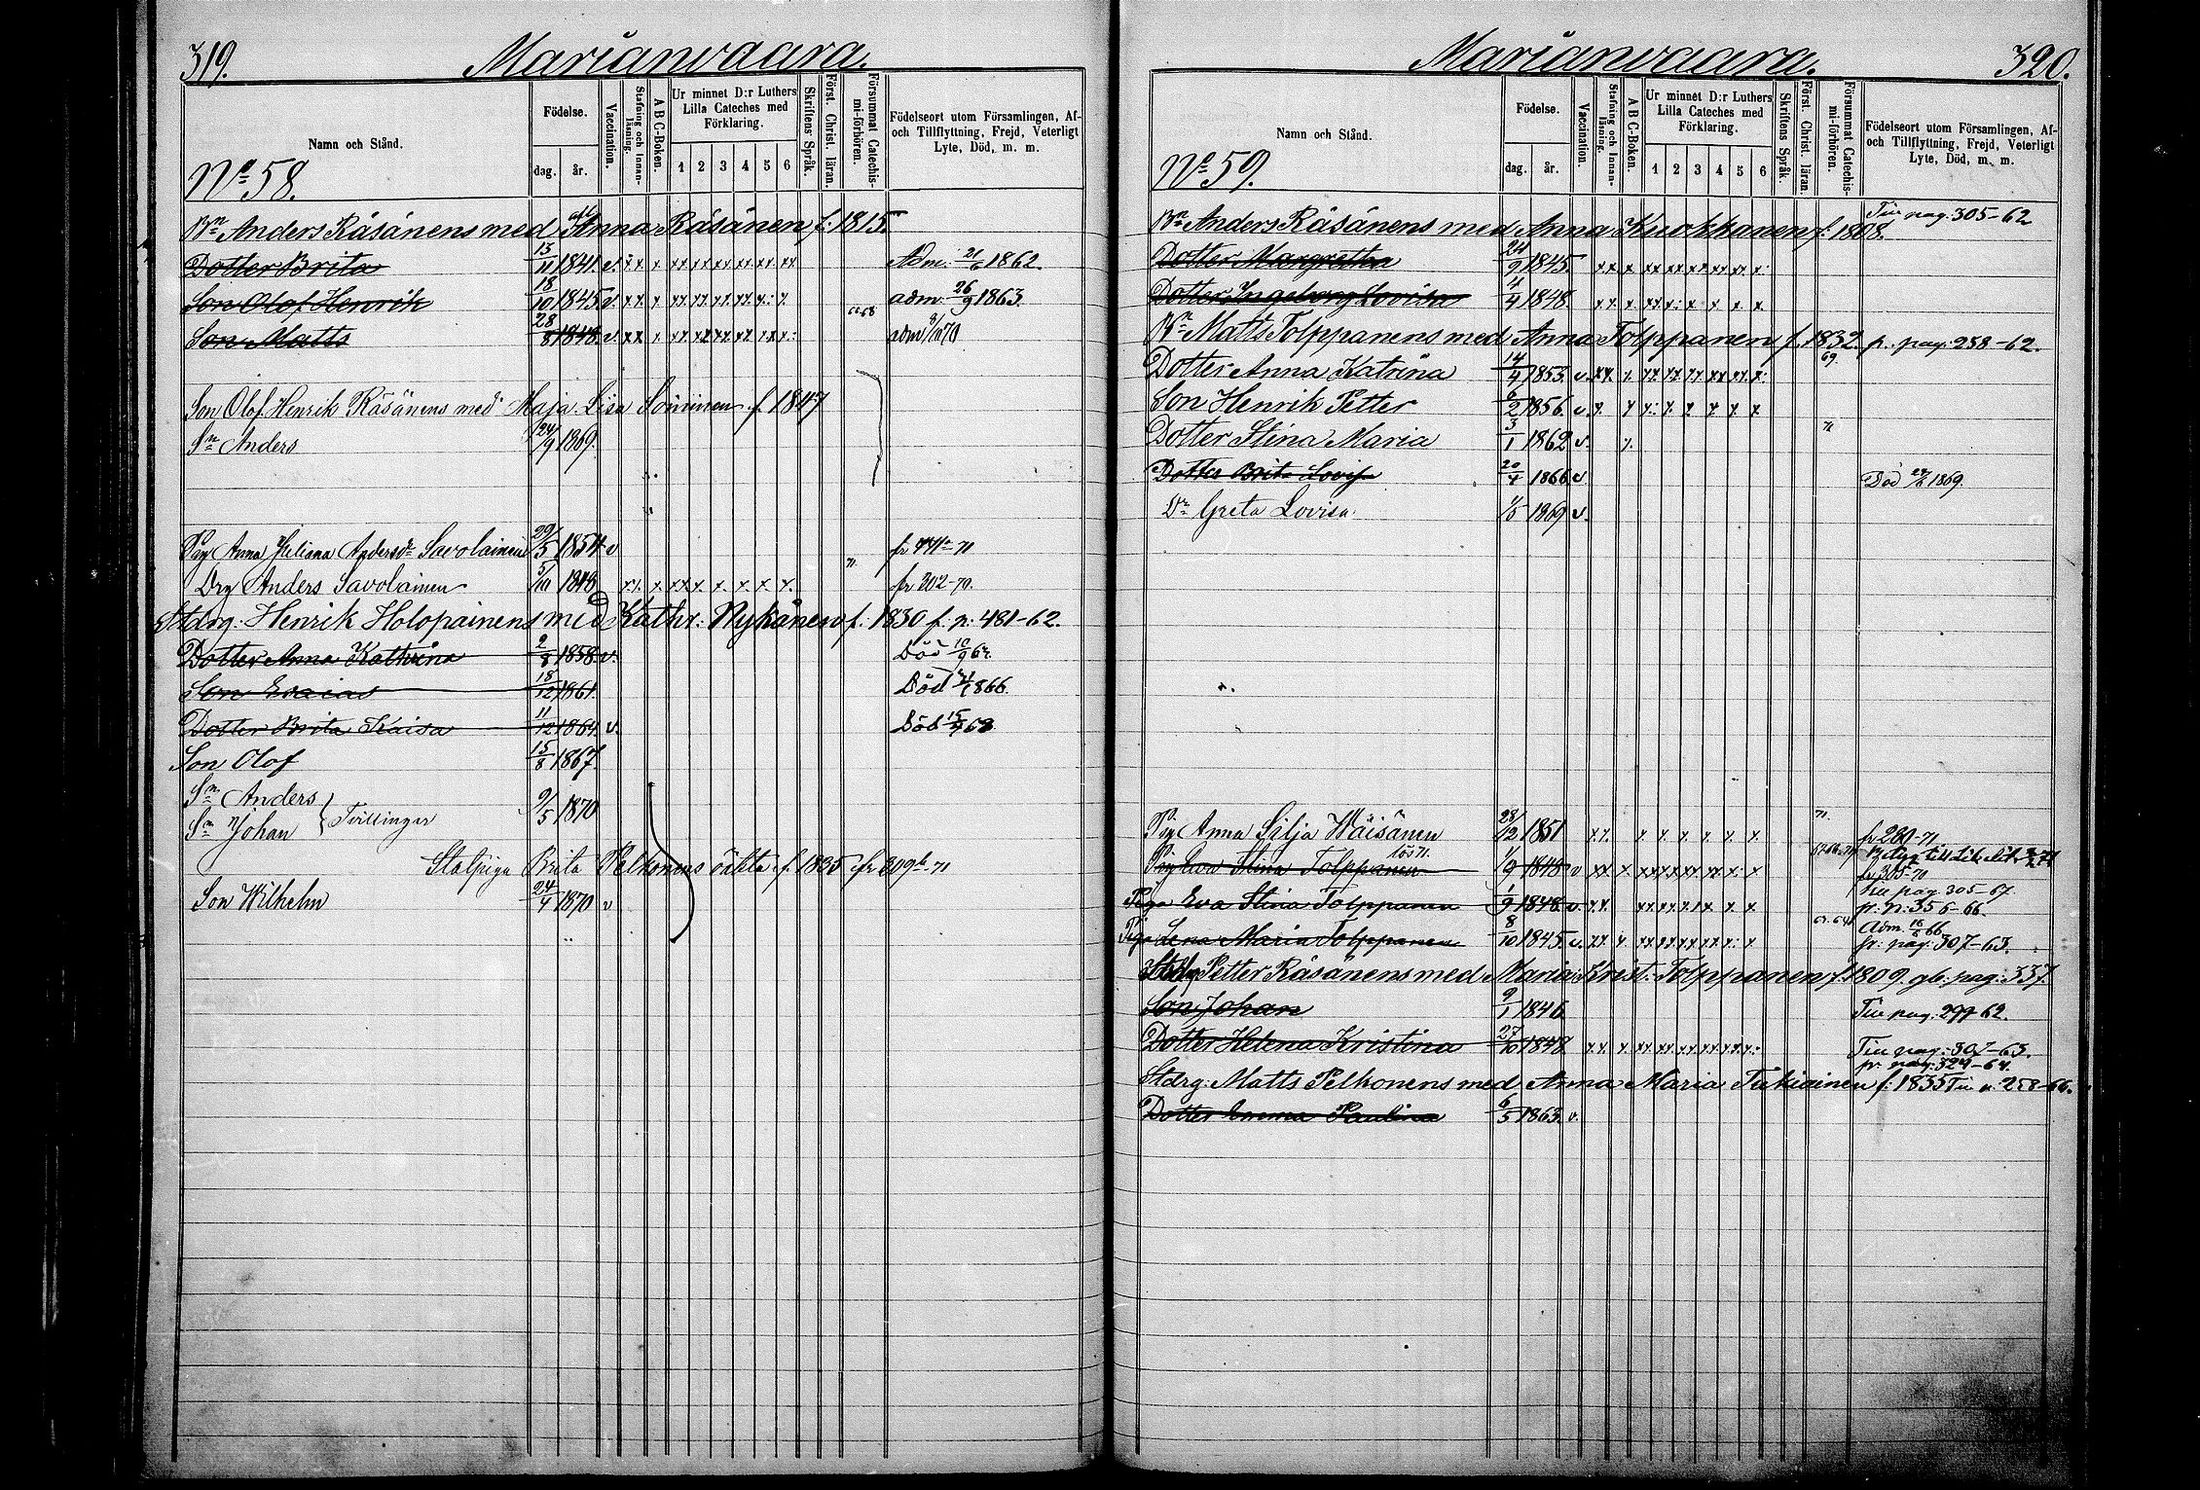 319.
Marianvaara.
Namn och Stånd.
Födelse.
dag.
år.
Vaccination.
Stafning och Innanläsning.
A B C-Boken.
Ur minnet D:r Luthers Lilla Cateches med Förklaring.
1 2 3 4 5 6
Skriftens Språk.
Först. Christ. läran.
Försummat Catechismi-förhören.
Födelseort utom Församlingen, Af- och Tillflyttning, Frejd, Veterligt Lyte, Död, m. m.
No 58.
Bn Anders Räsänens med Anna Räsänen f. 1815.
Dotter Brita 13/11 1841. v. Adm. 21/6 1862.
Son Olof Henrik 18/10 1845. v. adm. 26/9 1863.
Son Matts 28/8 1848. v. adm 1870
Son Olof Henrik Räsänens med Maja Lisa Soininen f 1847
Sn Anders 24/9 1869.
Pig Anna Juliana Andersdr Savolainen 29/5 1854 v
Drg Anders Savolainen 5/10 1848 fr 302-70.
Stdrg. Henrik Holopainens med Kathr. Nykänen f. 1830 f. p. 481-62.
Dotter Anna Kathrina 2/8 1858 v. Död
Son Esaias 18/12 1861. Död 1866.
Dotter Brita Kaisa 11/12 1864. v. Död 15/4 68
Son Olof 15/8 1867.
Sn Anders
Sn Johan } Tvillingar 9/5 1870
Stolpiga Brita Pelkonens oäkta f. 1835 fr 309b-71
Son Wilhelm 24/4 1870 v
Marianvaara.
320.
Namn och Stånd.
Födelse.
dag.
år.
Vaccination.
Stafning och Innanläsning.
A B C-Boken.
Ur minnet D:r Luthers Lilla Cateches med Förklaring.
1 2 3 4 5 6
Skriftens Språk.
Först. Christ. läran.
Försummat Catechismi-förhören.
Födelseort utom Församlingen, Af- och Tillflyttning, Frejd, Veterligt Lyte, Död, m. m.
No 59.
Bn Anders Räsänens med Anna Kuokkanen f. 1808. Tin pag. 305-62
Dotter Margretha 24/9 1845.
Dotter Ingeborg Lovisa 4/4 1848
Bn Matts Tolppanens med Anna Tolppanen f. 1832 fr. pag. 258-62.
Dotter Anna Katrina 14/4 1853. v. 69.
Son Henrik Petter 6/2 1856. v
Dotter Stina Maria 3/1 1862 v.
Dotter Brita Lovisa 20/4 1866 v. Död 1869.
Dr Greta Lovisa 1/5 1869 v.
Pig Anna Silja Wäisänen 28/12 1851 71. fr 280-71
Pig Eva Stina Tolppanen 1/9 1848 v fr 305-70
Tin pag. 305-67.
Piga Eva Stina Tolppanen 1/9 1848. v. fr. p. 356-66.
Piga Lena Maria Tolppanen 8/10 1845. v. fr. pag. 307-63.
Stdrg Petter Räsänens med Maria Krist. Tolppanen f. 1809. gb. pag. 337.
Son Johan 9/1 1846
Dotter Helena Kristina 27/10 1848 Tin pag. 307-63.
fr. pag. 324-64.
Stdrg. Matts Pelkonens med Anna Maria Tukiainen f. 1835
Dotter Emma Paulina 6/5 1863. v.